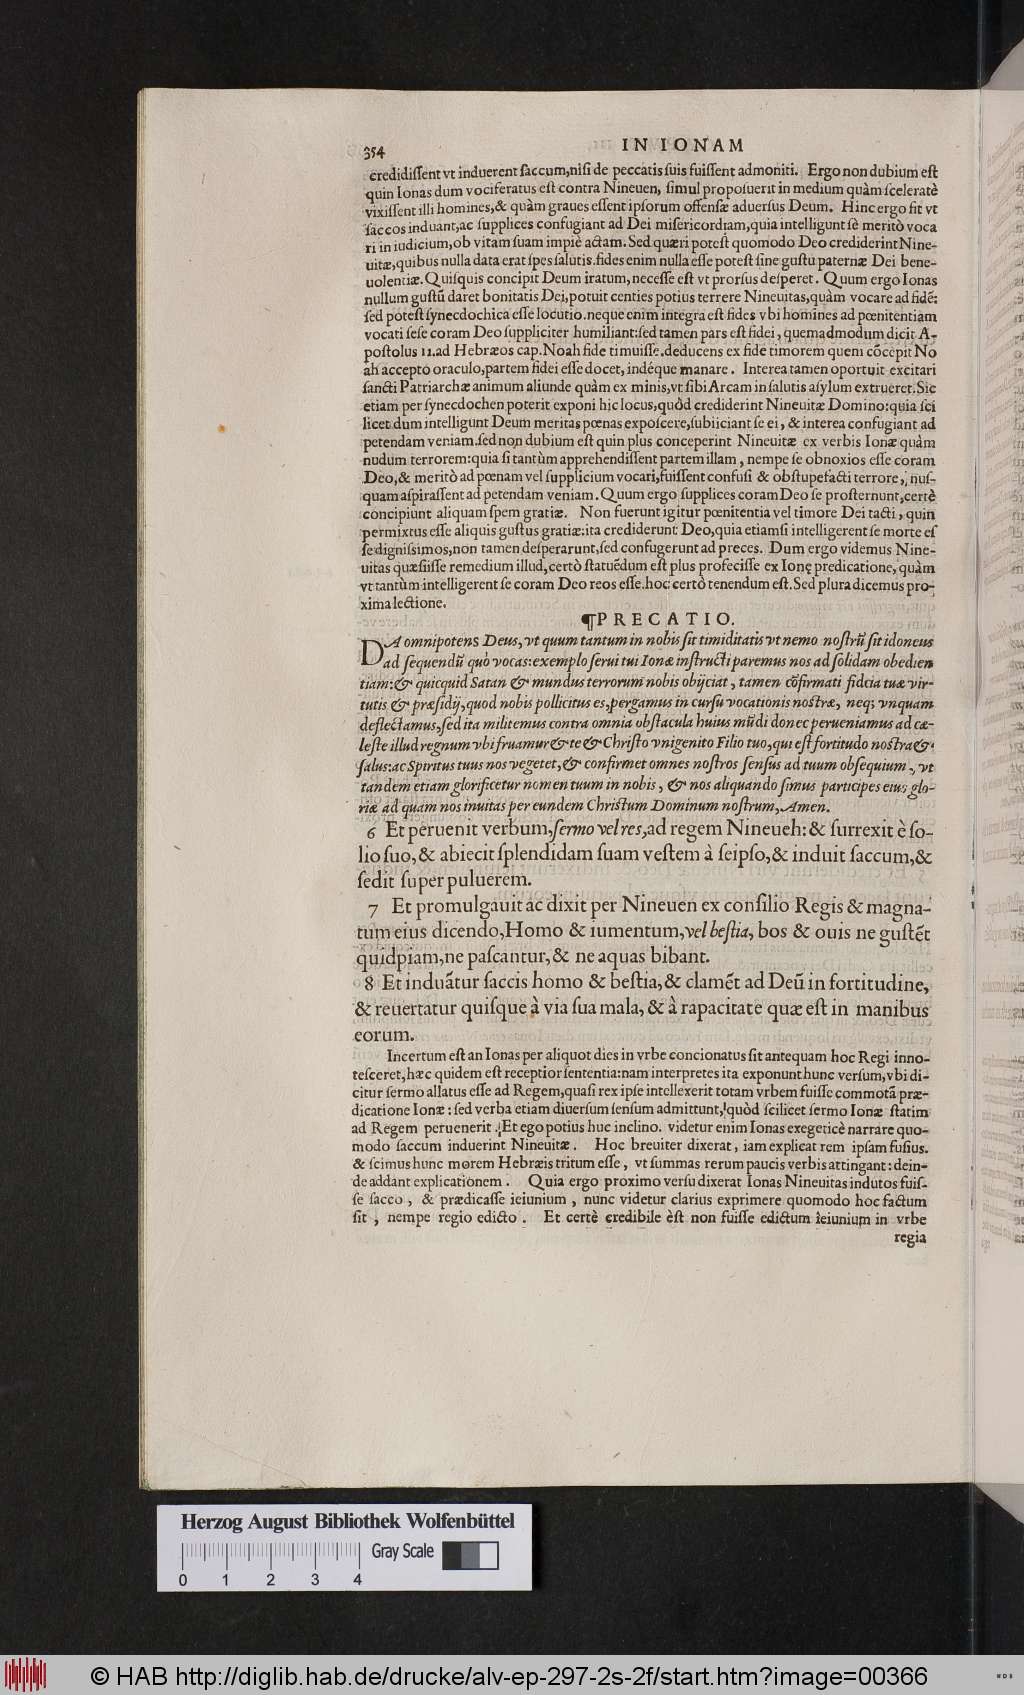 354
IN IONAM
credidiſſent vt induerent ſaccum,niſi de peccatis ſuis fuiſſent admoniti. Ergo non dubium eſt
quin Ionas dum vociferatus eſt contra Nineuen, ſimul propoſuerit in medium quàm ſceleratè
vixiſſent illi homines,& quàm graues eſſent ipſorum offenſæ aduerſus Deum. Hinc ergo fit vt
ſaccos induant,ac ſupplices confugiant ad Dei miſericordiam,quia intelligunt ſè meritò voca
ri in iudicium,ob vitam ſuam impiè actam. Sed quæri poteſt quomodo Deo crediderint Nine-
uitæ,quibus nulla data erat ſpes ſalutis.fides enim nulla eſſe poteſt ſine guſtu paternæ Dei bene-
uolentiæ. Quiſquis concipit Deum iratum, neceſſe eſt vt prorſus deſperet. Quum ergo Ionas
nullum guſtũ daret bonitatis Dei,potuit centies potius terrere Nineuitas,quàm vocare ad fidẽ:
ſed poteſt ſynecdochica eſſe locutio.neque enim integra eſt fides vbi homines ad pœnitentiam
vocati ſeſe coram Deo ſuppliciter humiliant:ſed tamen pars eſt fidei, quemadmodum dicit A-
poſtolus 11.ad Hebræos cap. Noah fide timuiſſe.deducens ex fide timorem quem cõcepit No
ah accepto oraculo,partem fidei eſſe docet, indéque manare. Interea tamen oportuit excitari
ſancti Patriarchæ animum aliunde quàm ex minis,vt ſibi Arcam in ſalutis aſylum extrueret. Sic
etiam per ſynecdochen poterit exponi hic locus,quòd crediderint Nineuitæ Domino:quia ſci
licet dum intelligunt Deum meritas pœnas expoſcere,ſubiiciant ſe ei, & interea confugiant ad
petendam veniam.ſed non dubium eſt quin plus conceperint Nineuitæ ex verbis Ionæ quàm
nudum terrorem:quia ſi tantùm apprehendiſſent partem illam, nempe ſe obnoxios eſſe coram
Deo,& meritò ad pœnam vel ſupplicium vocari,fuiſſent confuſi & obſtupefacti terrore, nuſ-
quam aſpiraſſent ad petendam veniam. Quum ergo ſupplices coram Deo ſe proſternunt,certè
concipiunt aliquam ſpem gratiæ. Non fuerunt igitur pœnitentia vel timore Dei tacti, quin
permixtus eſſe aliquis guſtus gratiæ:ita crediderunt Deo,quia etiamſi intelligerent ſe morte eſ
ſe digniſsimos,non tamen deſperarunt,ſed confugerunt ad preces. Dum ergo videmus Nine-
uitas quæſiiſſe remedium illud,certò ſtatuẽdum eſt plus profeciſſe ex Ionę predicatione, quàm
vt tantùm intelligerent ſe coram Deo reos eſſe.hoc certò tenendum eſt. Sed plura dicemus pro-
xima lectione.
¶PRECATIO.
DA omnipotens Deus, vt quum tantum in nobis ſit timiditatis vt nemo noſtrũ ſit idoneus
ad ſequendũ quò vocas:exemplo ſerui tui Ionæ inſtructi paremus nos ad ſolidam obedien
tiam:& quicquid Satan & mundus terrorum nobis obijciat, tamen cõfirmati fidcia tuæ vir-
tutis & præſidij,quod nobis pollicitus es,pergamus in curſu vocationis noſtræ, neq; vnquam
deflectamus,ſed ita militemus contra omnia obſtacula huius mũdi donec perueniamus ad cæ-
leſte illud regnum vbi fruamur & te & Chriſto vnigenito Filio tuo,qui eſt fortitudo noſtra &
ſalus:ac Spiritus tuus nos vegetet,& confirmet omnes noſtros ſenſus ad tuum obſequium, vt
tandem etiam glorificetur nomen tuum in nobis, & nos aliquando ſimus participes eius glo-
riæ ad quam nos inuitas per eundem Chriſtum Dominum noſtrum, Amen.
6 Et peruenit verbum,ſermo vel res,ad regem Nineueh: & ſurrexit è ſo-
lio ſuo,& abiecit ſplendidam ſuam veſtem à ſeipſo,& induit ſaccum,&
ſedit ſuper puluerem.
7 Et promulgauit ac dixit per Nineuen ex conſilio Regis & magna-
tum eius dicendo,Homo & iumentum,vel beſtia, bos & ouis ne guſtẽt
quidpiam,ne paſcantur,& ne aquas bibant.
8 Et induãtur ſaccis homo & beſtia,& clamẽt ad Deũ in fortitudine,
& reuertatur quiſque à via ſua mala, & à rapacitate quæ eſt in manibus
eorum.
Incertum eſt an Ionas per aliquot dies in vrbe concionatus ſit antequam hoc Regi inno-
teſceret,hæc quidem eſt receptior ſententia:nam interpretes ita exponunt hunc verſum,vbi di-
citur ſermo allatus eſſe ad Regem,quaſi rex ipſe intellexerit totam vrbem fuiſſe commotã præ-
dicatione Ionæ: ſed verba etiam diuerſum ſenſum admittunt, quòd ſcilicet ſermo Ionæ ſtatim
ad Regem peruenerit. Et ego potius huc inclino. videtur enim Ionas exegeticè narrare quo-
modo ſaccum induerint Nineuitæ. Hoc breuiter dixerat, iam explicat rem ipſam fuſius.
& ſcimus hunc morem Hebræis tritum eſſe, vt ſummas rerum paucis verbis attingant: dein-
de addant explicationem. Quia ergo proximo verſu dixerat Ionas Nineuitas indutos fuiſ-
ſe ſacco, & prædicaſſe ieiunium, nunc videtur clarius exprimere quomodo hoc factum
ſit, nempe regio edicto. Et certè credibile èſt non fuiſſe edictum ieiunium in vrbe
regia
Herzog August Bibliothek Wolfenbüttel
Gray Scale
0 1 2 3 4
© HAB http://diglib.hab.de/drucke/alv-ep-297-2s-2f/start.htm?image=00366